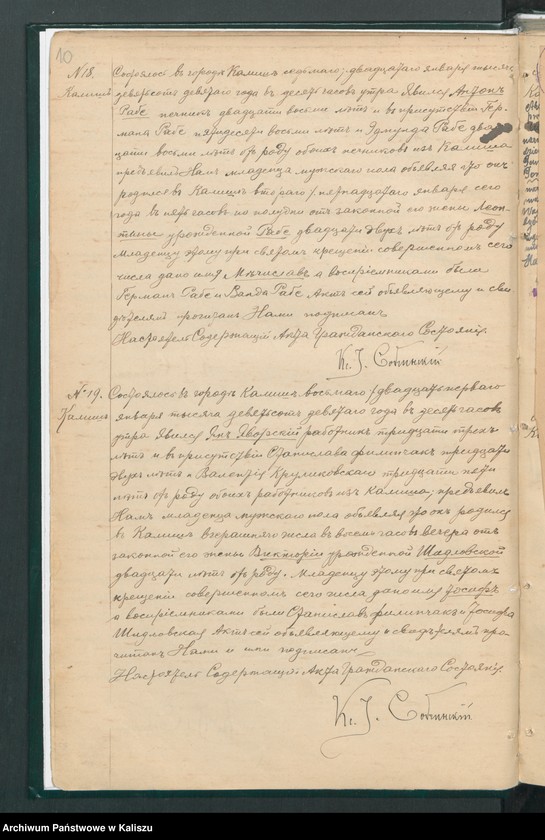 10
№ 18.
Калишъ
Состоялось въ городѣ Калишѣ седьмаго / двадцатаго января тысяча
девятьсотъ девятаго года въ десять часовъ утра. Явился Антонъ
Рабе печникъ двадцати восьми лѣтъ и въ присутствіи Гер-
мана Рабе пятидесяти восьми лѣтъ и Эдмунда Рабе двад-
цати восьми лѣтъ отъ роду обоихъ печниковъ изъ Калиша
предъявилъ Намъ младенца мужскаго пола объявляя что онъ
родился въ Калишѣ втораго / пятнадцатаго января сего
года въ часовъ по полудни отъ законной его жены Леон-
тины урожденной Рабе двадцати двухъ лѣтъ отъ роду
Младенцу этому при святомъ крещеніи совершенномъ сего
числа дано имя Мѣчиславъ а воспріемниками были
Германъ Рабе и Ванда Рабе. Актъ сей объявляющему и сви-
дѣтелямъ прочитанъ Нами подписанъ
Настоятель Содержащій Акты Гражданскаго Состоянія.
Кс. I. Собчинскій
№ 19.
Калишъ
Состоялось въ городѣ Калишѣ восьмаго / двадцать перваго
января тысяча девятьсотъ девятаго года въ десять часовъ
утра. Явился Янъ Яворскій работникъ тридцати трехъ
лѣтъ и въ присутствіи Станислава тридцати
двухъ лѣтъ и Валентія Круликовскаго тридцати пяти
лѣтъ отъ роду обоихъ работниковъ изъ Калиша, предъявилъ
Намъ младенца мужскаго пола объявляя что онъ родился
въ Калишѣ вчерашняго числа въ восемь часовъ вечера отъ
законной его жены Викторіи урожденной Шадловской
двадцати лѣтъ отъ роду. Младенцу этому при святомъ
крещеніи совершенномъ сего числа дано имя Іосифъ
а воспріемниками были Станиславъ и Іосифа
Шадловская Актъ сей объявляющему и свидѣтелямъ про-
читанъ Нами и подписанъ
Настоятель Содержащій Акты Гражданскаго Состоянія.
Кс. I. Собчинскій
Archiwum Państwowe w Kaliszu